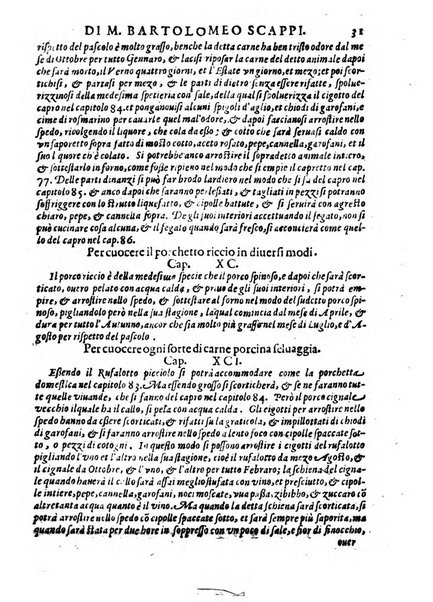 DI M. BARTOLOMEO SCAPPI. 31
rispetto del pascolo è molto grasso, benche la detta carne ha ben tristo odore dal me
se di Ottobre per tutto Gennaro, & lacisi riposar la carne del detto animale dapoi
che sarà morto, il Verno quattro giorni, et l'Estate vn giorno, et mezo; et poi scor-
tichisi, & partasi per mezo, & le parti di dietro senza essere rifatte, spolue-
rizzinosi della medesima spetieria con sale, della qual si spoluerizza il cigotto del
capro nel capitolo 84. et ponganuisi alcuni spigoli d'aglio, et chiodi di garofani, e
cime di rosmarino per cauarle quel mal'odore, & dapoi faccianosi arrostire nello
spedo, riccogliendo il liquor, che cola da esso; & cotto che sarà seruasi caldo con
vn saporetto sopra fatto di mosto cotto, aceto rosato, pepe, cannella, garofani, et il
suo l quore ch'è colato. Si potrebbe anco arrostire il sopradetto animale intero,
& sottestarlo in forno, come fosse ripieno di quella materia che si empie il capretto nel cap.
77. Delle parti dinanzi si può far brodo lardiero nel modo che si fa del capro nel
capitolo 85. & dapoi che saranno perlessati, & tagliati in pezzi si potranno
soffriggere con le strutto, ò lardo colato, & cipolle battute, & si seruirà con agresto
chiaro, pepe, & cannella sopra. De gli suoi interiori accettuando il fegato, non si
può cucinare cosa alcuna, & quando sarà fresco, si acconcierà come quel-
lo del capro nel cap. 86.
Per cuocere il porchetto riccio in diuersi modi.
Cap. XC.
Il porco riccio è della medesima specie che il porco spinoso, & dapoi che sarà scor-
ticato, ouero pelato con acqua calda, & netto de gli suoi interiori, si potrà empi-
re, & arrostire nello spedo, & sottestare al forno nel modo del sudetto porco spi-
noso, pigliandolo però nella sua stagione, laqual comincia dal mese di Aprile, &
dura per tutto l'Autunno, ancor che sia piu grasso nel mese di Luglio, e d'A-
gosto per rispetto del pascolo.
Per cuocere ogni sorte di carne porcina seluaggia.
Cap. XCI.
Essendo il Rufalotto picciolo si potrà accommodare come la porchetta
domestica nel capitolo 83. Ma essendo grosso si scorticherà, & se ne faranno tut-
te quelle viuande, che si fanno del capro nel capitolo 84. Però il porco cignale
vecchio il qual ha il callo, si pela con acqua calda. Gli cigotti per arrostire nello
spedo hanno da essere scorticati, & rifatti su la graticola, & impillottati di chiodi
di garofani, & si faranno arrostire nello spedo a lento foco con cipolle spaccate sot-
to, o pezzi di cotogni. In questo modo si possono arrostire i cigotti del rufalotto
pigliando l'vno et l'altro nella sua stagione, cioè il rufalotto da mezo Agosto, &
il cignale da Ottobre, & l'vno, & l'altro per tutto Febraro; la schiena del cigna-
le quando hauerà il callo, se ne può cauar meglio stufata con vino, & acqua, et cipol-
le intiere, pepe, cannella, garofani, noci moscate, vua passa, zibibbo, & zuccaro cõ
altretanta acqua quanto vino. Ma quando la detta schiena sarà scorticata, si
potrà arrostire nello spedo cõ cipolle spaccate sotto, et sarà sempre più saporita, ma
quando sarà stata per due hore in soppresso con vn poco di sale, e fior di finocchio,
ouer